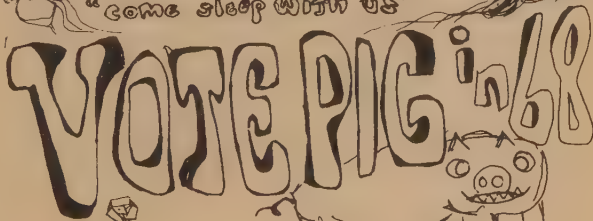 "come sleep with us
VOTE PIG in 68